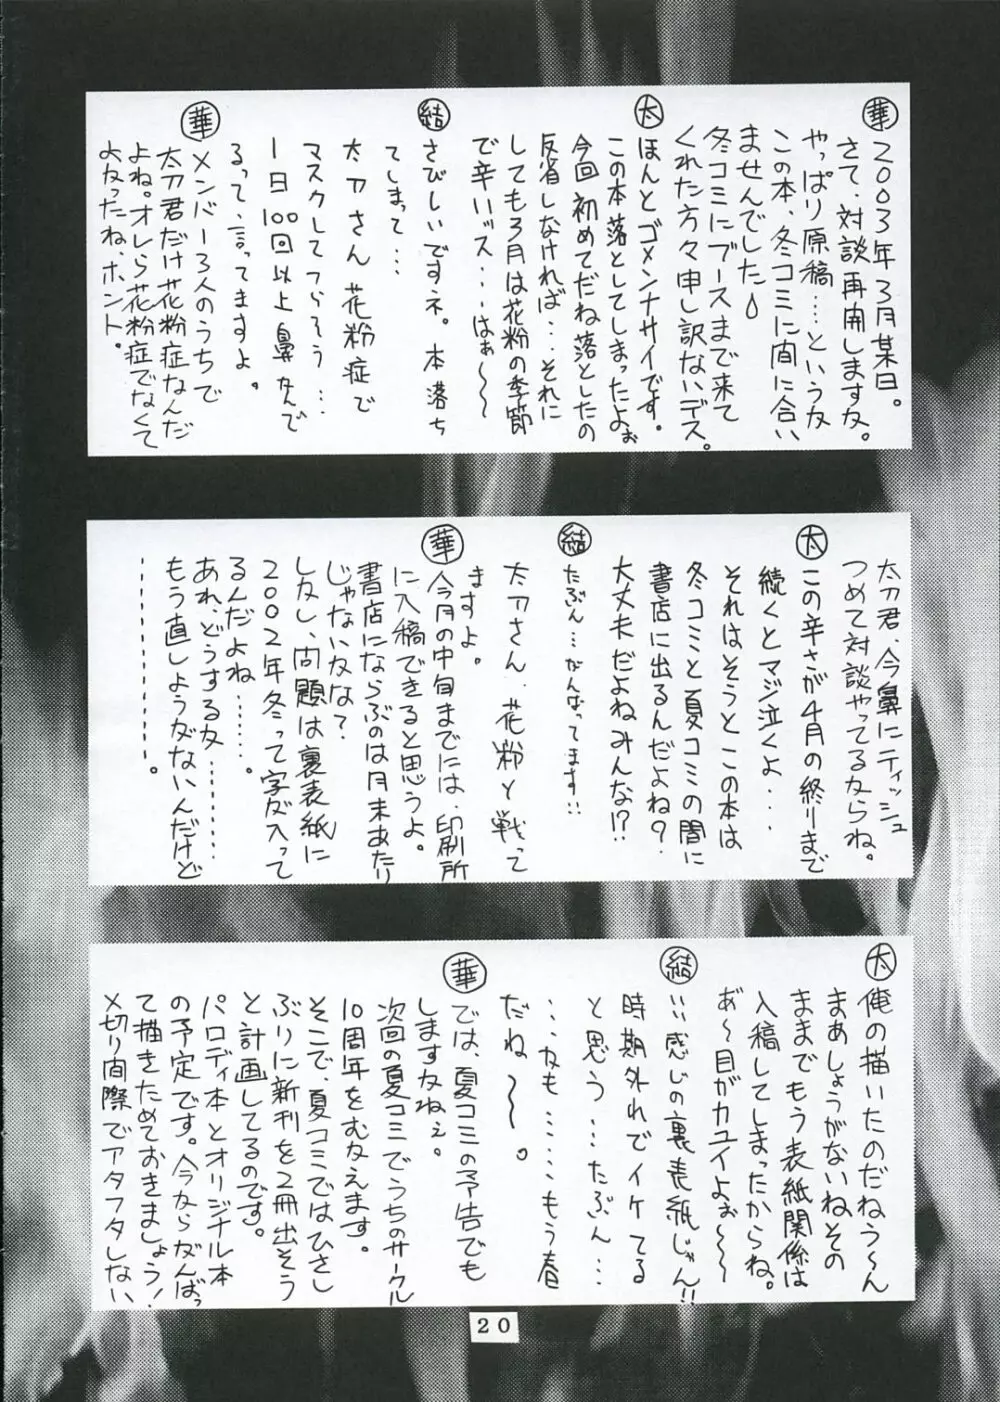 華
２００３年３月某日。
さて、対談再開しますな。
やっぱり原稿…というか
この本、冬コミに間に合い
ませんでした
冬コミにブースまで来て
くれた方々申し訳ないデス。
太
ほんとゴメンナサイです。
この本落としてしまったよぉ
今回初めてだね落としたの
反省しなければ…それに
しても３月は花粉の季節
で辛いッス…はぁ〜〜
結
さびしいですネ。本落ち
てしまって…
太刀さん花粉症で
マスクしてつらそう…
１日100回以上鼻かんで
るって、言ってますよ。
華
メンバー３人のうちで
太刀君だけ花粉症なんだ
よね。オレら花粉症でなくて
よかったね、ホント。
太刀君、今鼻にティッシュ
つめて対談やってるからね。
太
この辛さが４月の終りまで
続くとマジ泣くよ…
それはそうとこの本は
冬コミと夏コミの間に
書店に出るんだよね？
大丈夫だよねみんな!?
結
たぶん…がんばってます!!
太刀さん、花粉と戦って
ますよ。
華
今月の中旬までには、印刷所
に入稿できると思うよ。
書店にならぶのは月末あたり
じゃないかな？
しかし、問題は裏表紙に
２００２年冬って字が入って
るんだよね……。
あれ、どうするな………
もう直しようがないんだけど
……………。
太
俺の描いたのだねう〜ん
まあしょうがないねその
ままでもう表紙関係は
入稿してしまったからね。
あ゛〜目がカユイよぉ〜〜
結
いい感じの裏表紙じゃん!!
時期外れでイケてる
と思う…たぶん…
…かも……もう春
だね〜〜。
華
では、夏コミの予告でも
しますかねぇ。
次回の夏コミでうちのサークル
10周年をむかえます。
そこで、夏コミではひさし
ぶりに新刊を２冊出そう
と計画してるのです。
パロディ本とオリジナル本
の予定です。今からがんばっ
て描きためておきましょう！
〆切り間際でアタフタしない
２０